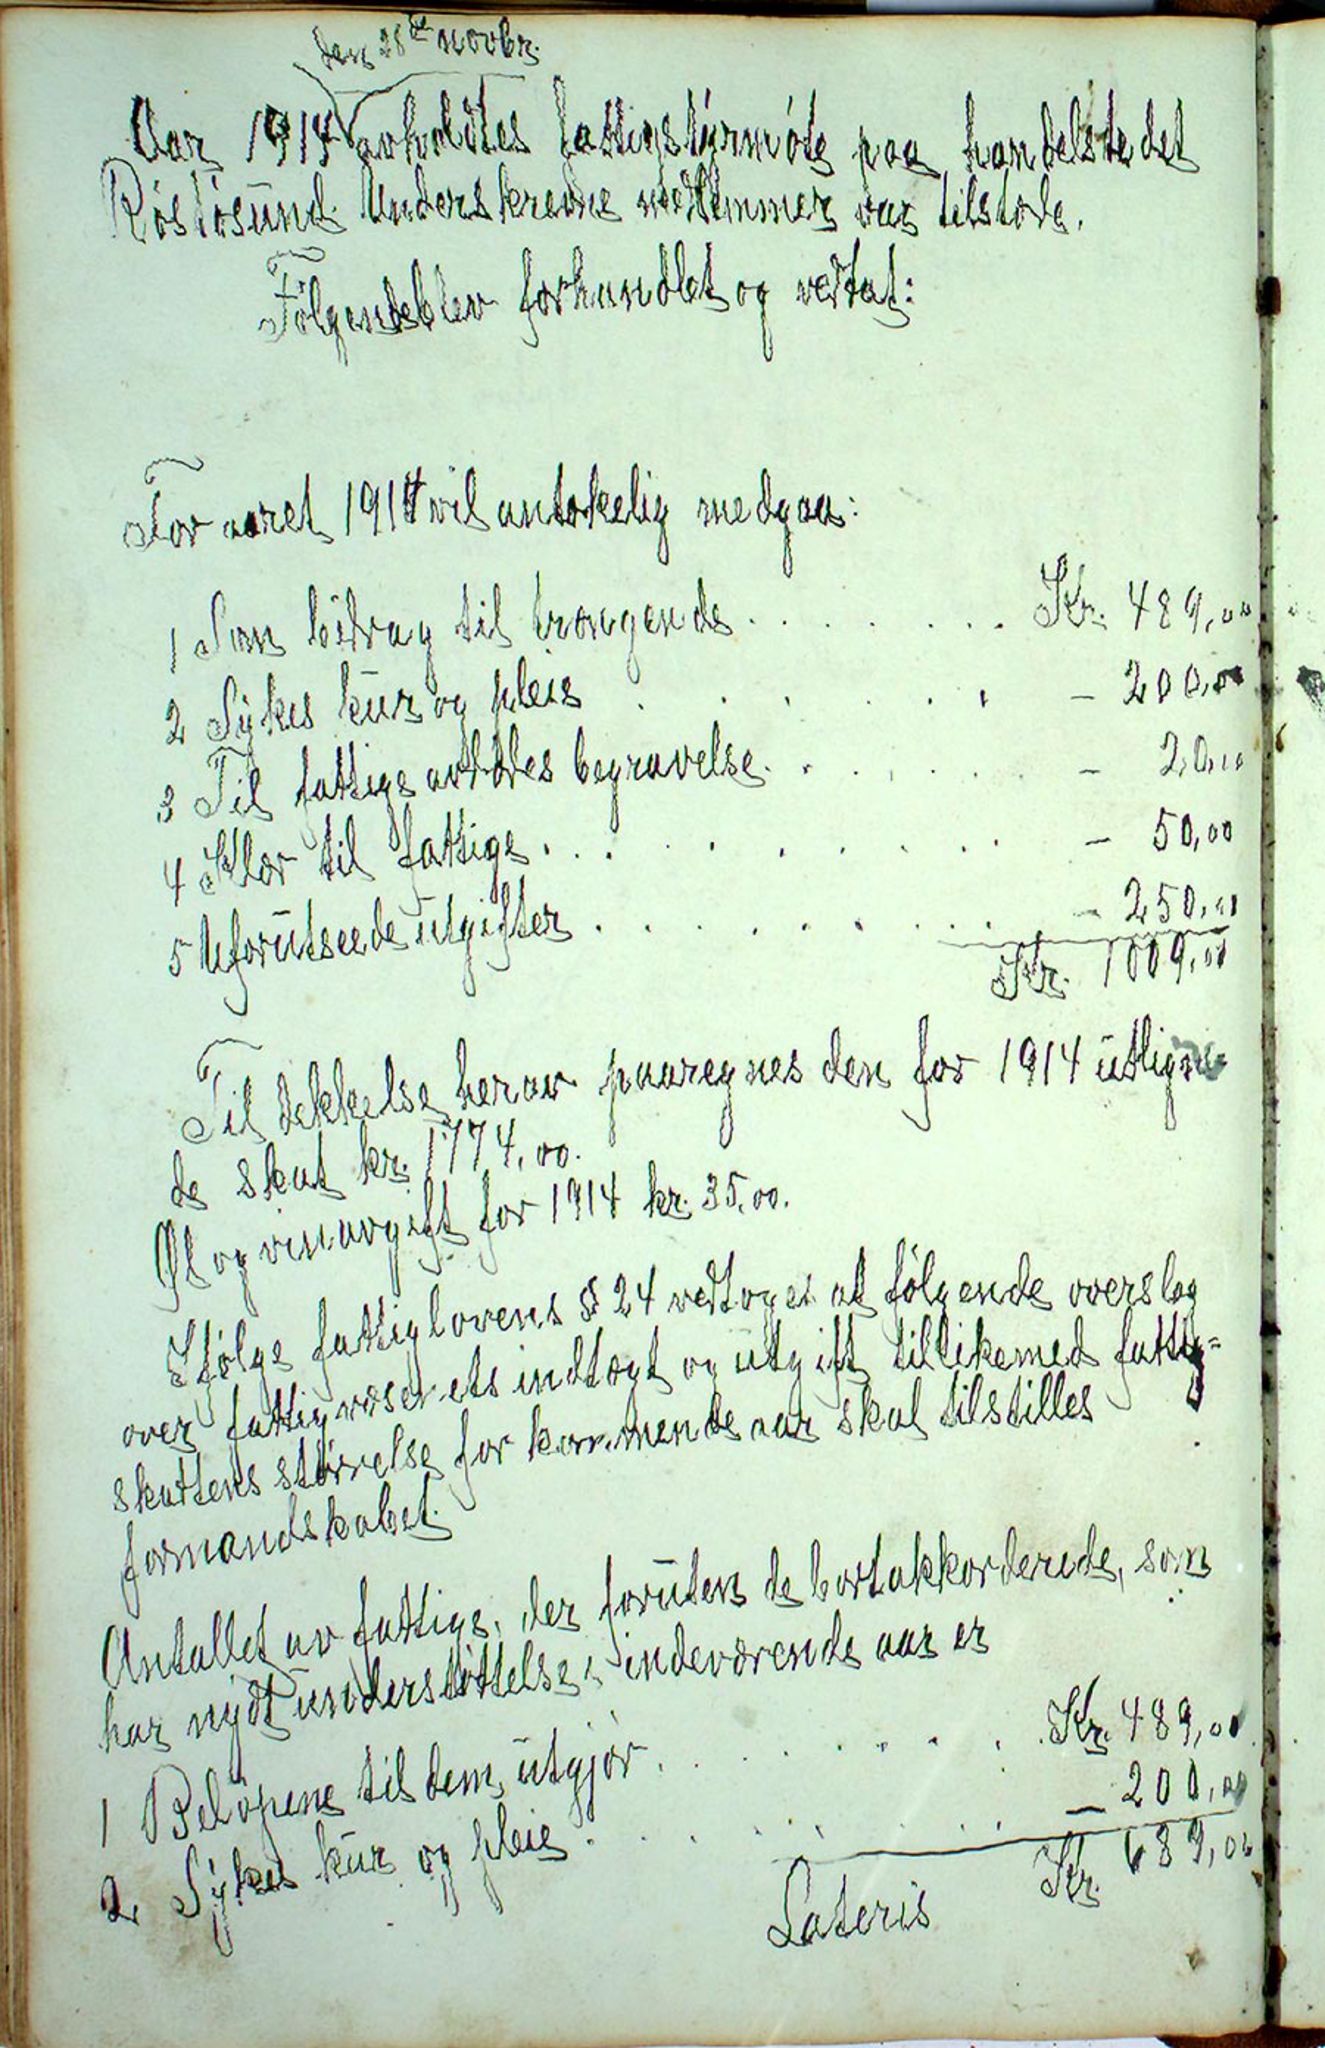 den 28de novbr.
Aar 1914 avholdtes fattigstyrmøte paa handelstedet
Røstøsund. Underskrevne medlemmer var tilstede.
Følgende blev forhandlet og vedtat:
For aaret 1914 vil antakelig medgaa:
1 Som bidrag til trængende . . . . . . . Kr. 489,00
2 Sykes kur og pleie . . . . . . - 200,00
3 Til fattige avdødes begravelse . . . . . . - 20,00
4 Klær til fattige . . . . . . . . . - 50,00
5 Uforutseede utgifter . . . . . . . . - 250,00
Kr. 1009,00
Til dekkelse herav paaregnes den for 1914 utligne-
de skat kr. 1774,00.
Øl og vinavgift for 1914 kr. 35,00.
Ifølge fattiglovens § 24 vedtoges at følgende overslag
over fattigvæsenets indtægt og utgift tillikemed fattig=
skattens størrelse for kommende aar skal tilstilles
formandskabet.
Antallet av fattige, der foruten de bortakkorderede, som
har nydt understøttelse i indeværende aar er
1 Beløpene til dem utgjør . . . . . . . Kr. 489,00
2 Sykes kur og pleie . . . . . . . - 200,00
Lateris Kr. 689,00